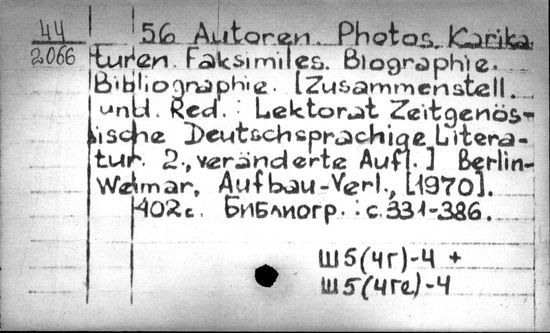 44
2066
56 Autoren. Photos, Karika
turen. Faksimiles. Biographie.
Bibliographie. [Zusammenstell.
und. Red.: Lektorat Zeitgenös-
sische Deutschsprachige Litera-
tur. 2., veränderte Aufl.] Berlin-
Weimar, Aufbau-Verl., [1970].
402 с. Библиогр.: с. 331-386.
Ш5(4Г)-4 +
Ш5(4Ге)-4